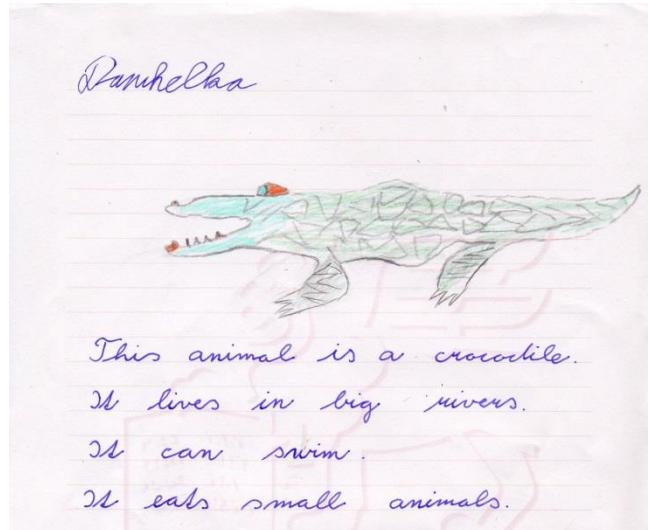 Damhelka
This animal is a crocodile.
It lives in big rivers.
It can swim.
It eats small animals.